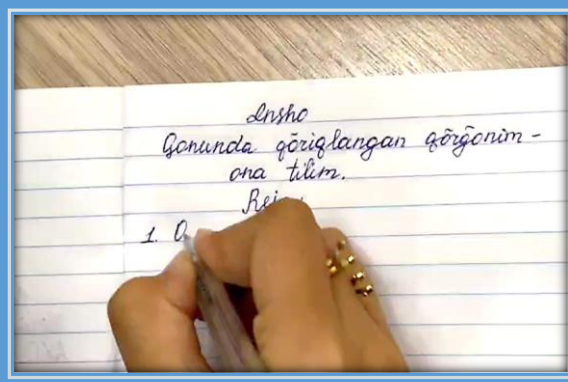 Insho
Qonunda qōriqlangan qōrḡonim -
ona tilim.
1. O